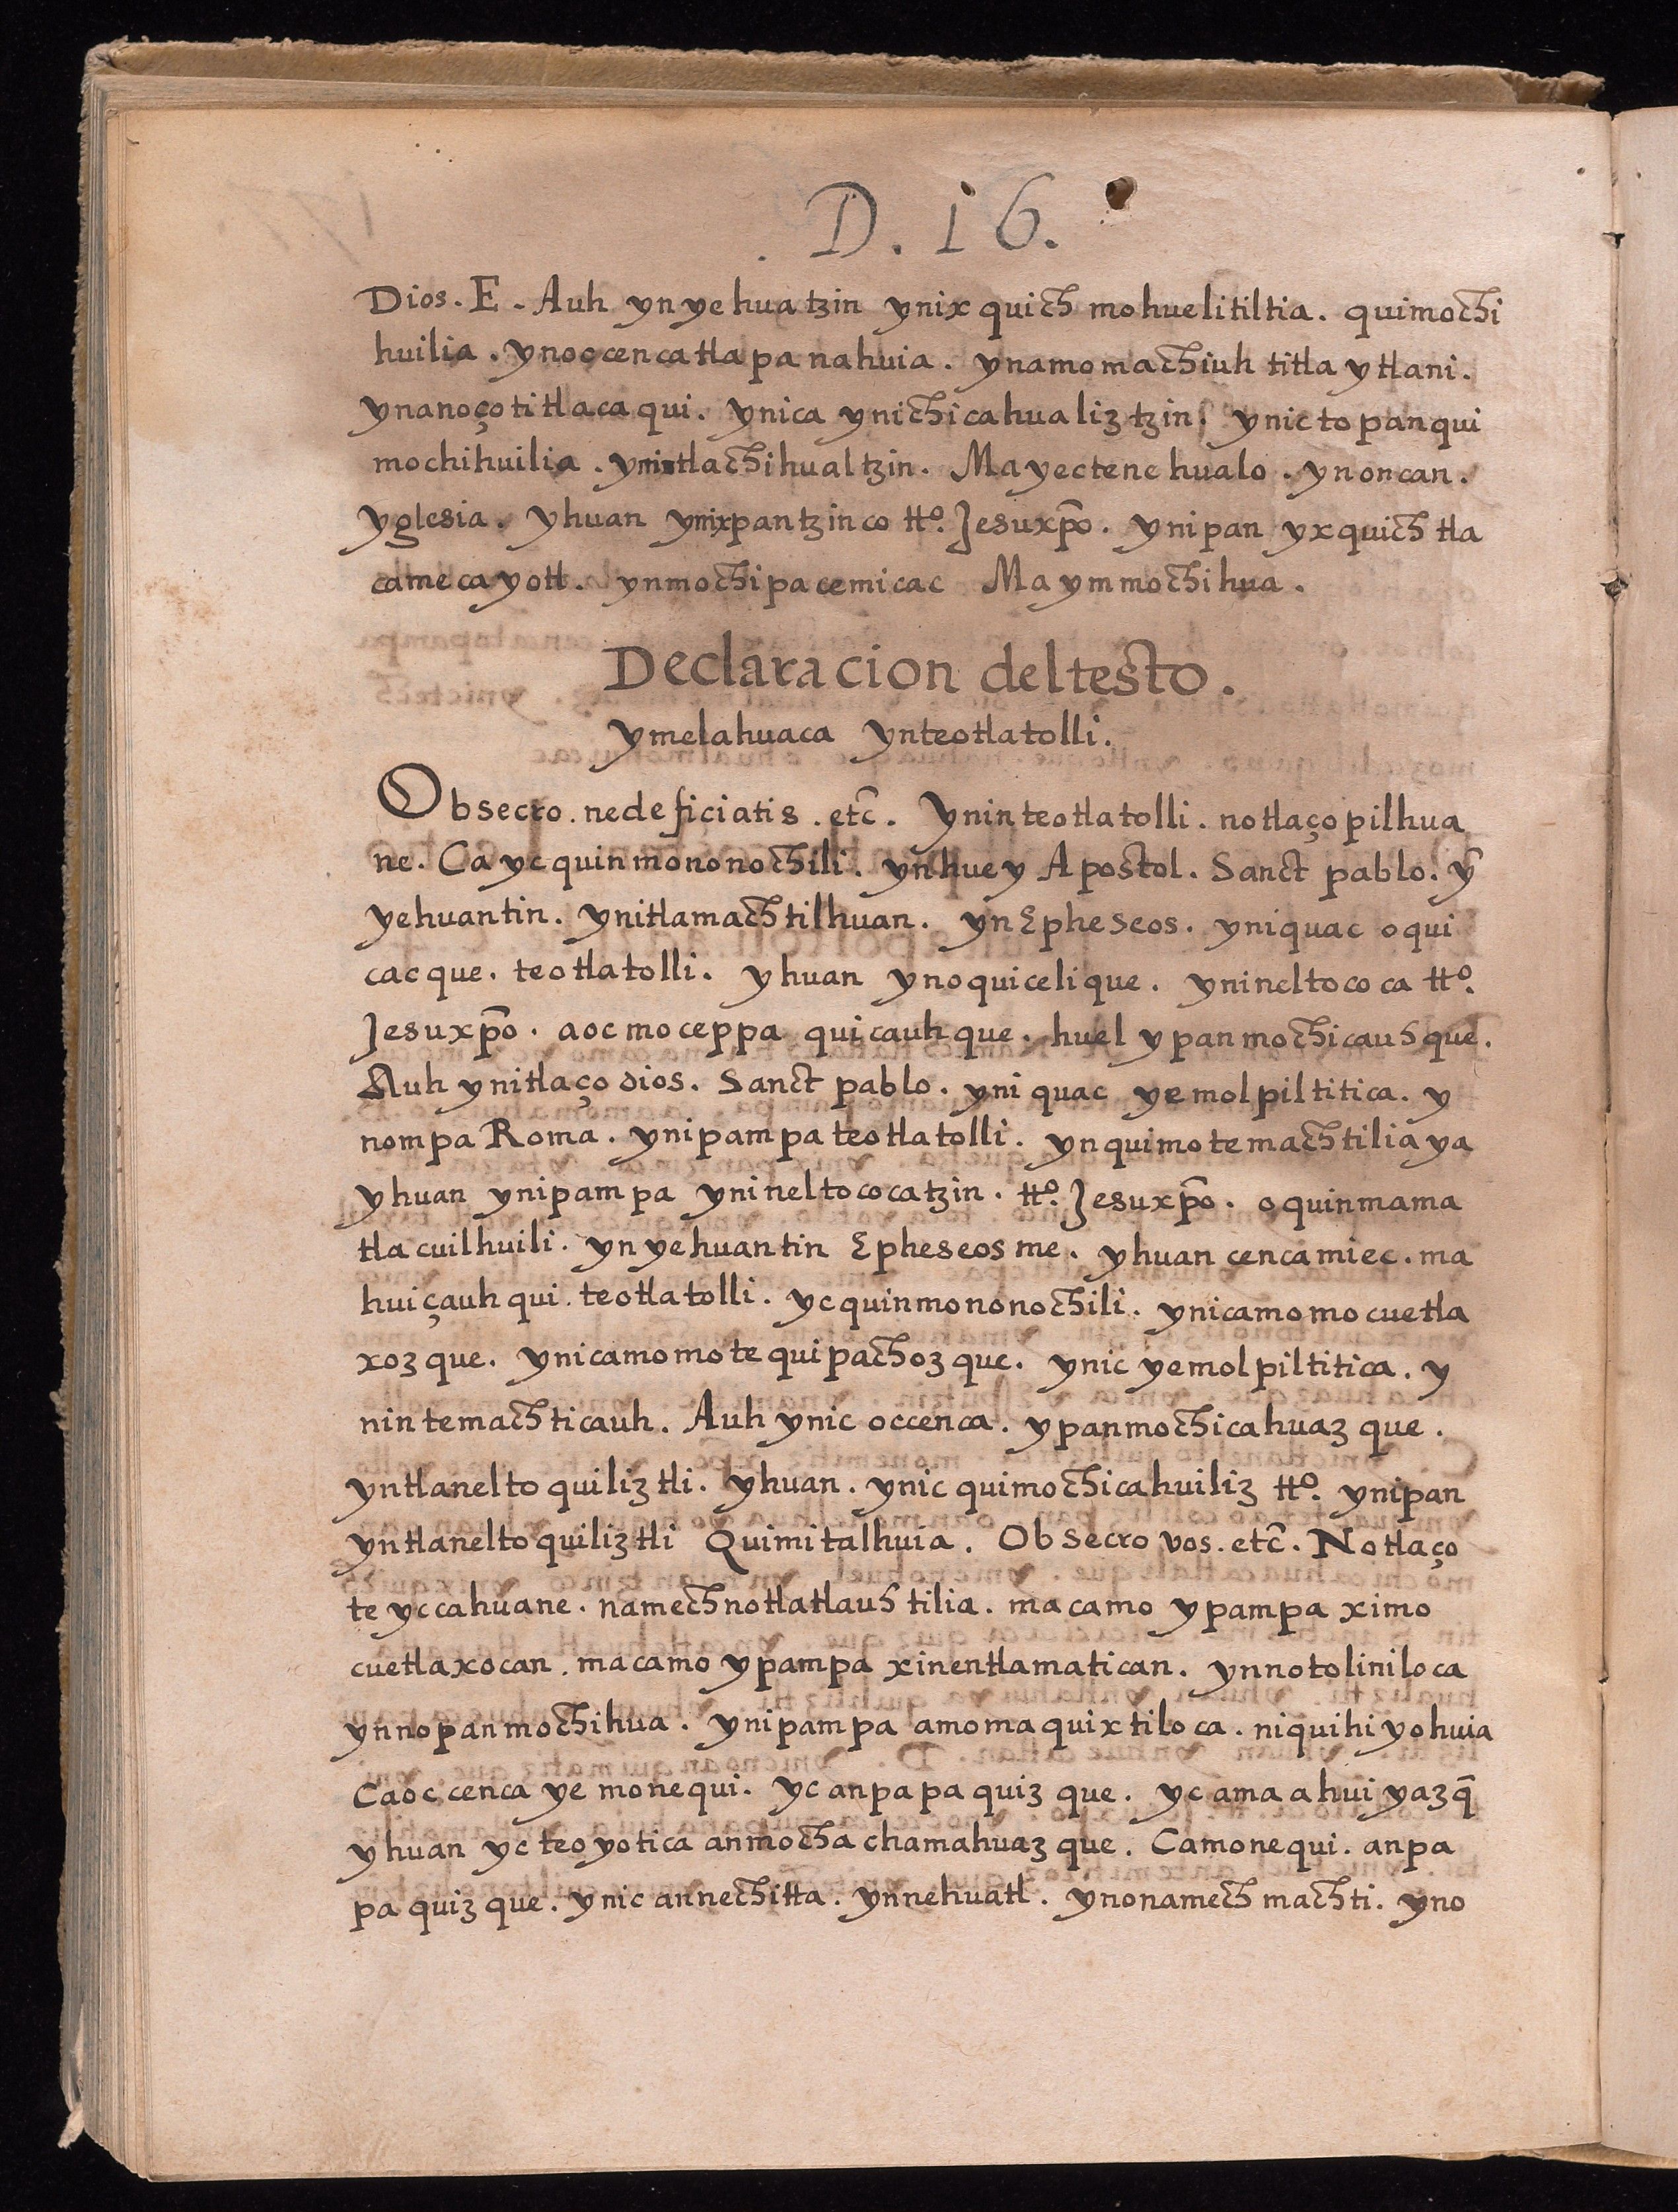 D. 16.
Dios. E. Auh yn yehuatzin ynixquich mohuelitiltia. quimochi
huilia. ynoccencatlapanahuia. ynamomachiuh titlaytlani.
ynanoçotitlacaqui. ynica ynichicahualiztzin. ynictopanqui
mochihuilia. ynintlachihualtzin. Mayectenehualo. ynoncan.
yglesia. yhuan ynixpantzinco tto. Jesuxpo. ynipan yxquich tla
camecayotl. ynmochipa cemicac Maymmochihua.
Declaracion deltesto.
ymelahuaca ynteotlatolli.
Obsecro. nedeficiatis. etc. Yninteotlatolli. notlaçopilhua
ne. Ca yc quinmononochili. ynhuey Apostol. Sanct pablo. y̅
yehuantin. ynitlamachtilhuan. ynEpheseos. yniquac oqui
cacque. teotlatolli. yhuan ynoquicelique. ynineltococa tto.
Jesuxpo. aocmoceppa quicauhque. huel ypanmochicauhque.
Auh ynitlaço dios. Sanct pablo. yniquac yemolpiltitica. y
nompa Roma. ynipampa teotlatolli. ynquimotemachtiliaya
yhuan ynipampa ynineltococatzin. tto. Jesuxpo. oquinmama
tlacuilhuili. yn yehuantin Epheseosme. yhuan cencamiec. ma
huiçauhqui. teotlatolli. yc quinmononochili. ynicamomocuetla
xozque. ynicamomotequipachozque. ynic yemolpiltitica. y
nintemachticauh. Auh ynic occenca. ypanmochicahuazque.
yntlaneltoquiliztli. yhuan. ynic quimochicahuiliz tto. ynipan
yntlaneltoquiliztli Quimitalhuia. Obsecro vos. etc. Notlaço
te yccahuane. namechnotlatlauhtilia. macamo ypampa ximo
cuetlaxocan. macamo ypampa xinentlamatican. ynnotoliniloca
ynnopanmochihua. ynipampa amomaquixtiloca. niquihiyohuia
Caoc cenca ye monequi. yc anpapaquizque. yc amaahuiyazq̅
yhuan yc teoyotica anmochachamahuazque. Camonequi. anpa
paquizque. ynic annechitta. ynnehuatl. ynonamechmachti. yno